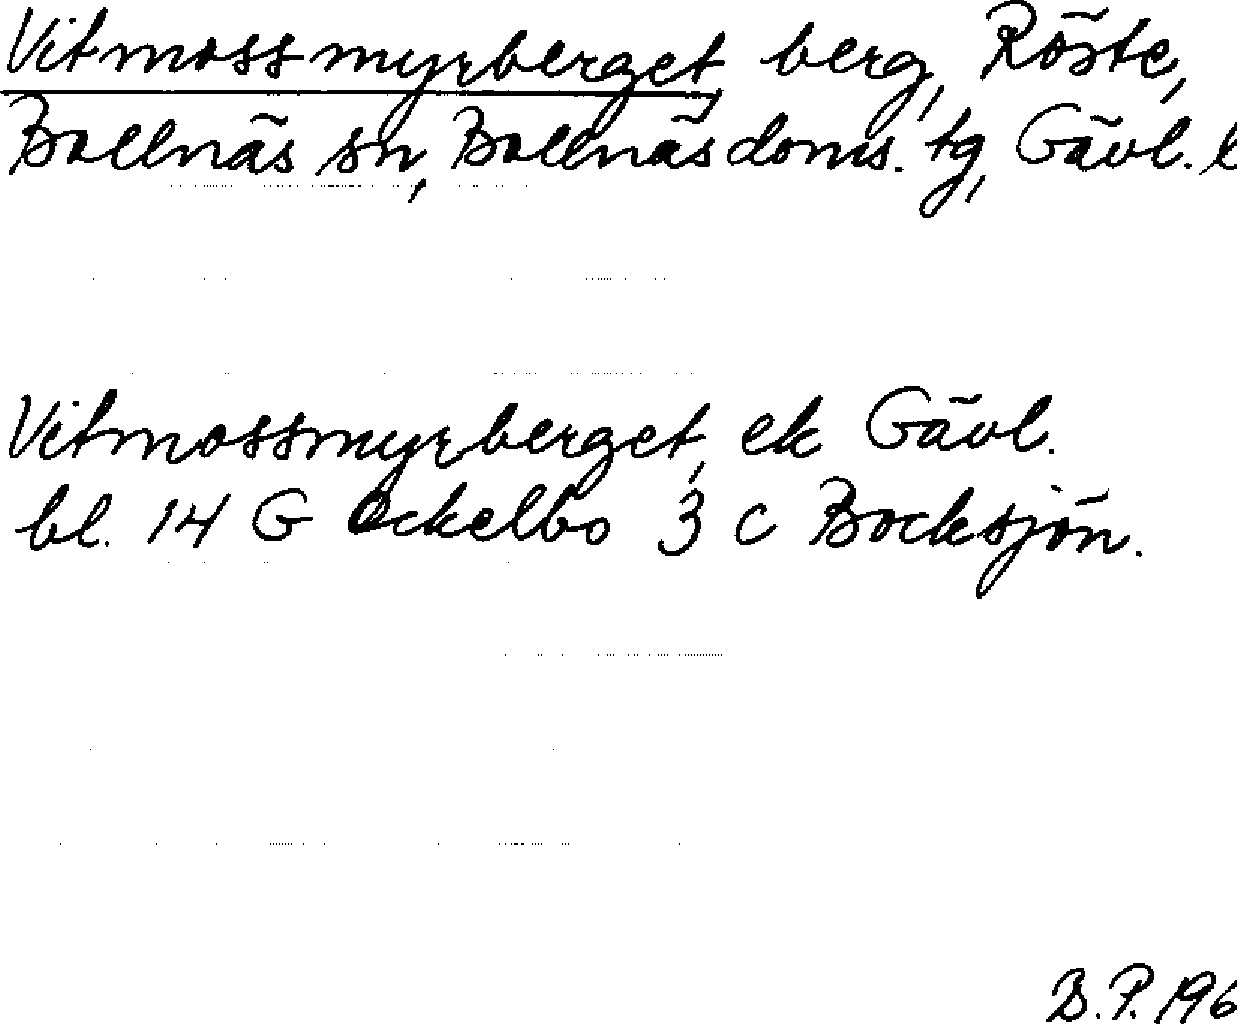 Vitmossmyrberget, berg, Röste,
Bollnäs sn, Bollnäs doms. tg, Gävl. l
Vitmossmyrberget, ek Gävl.
bl. 14 G Ockelbo 3 c Bocksjön.
B.P. 196